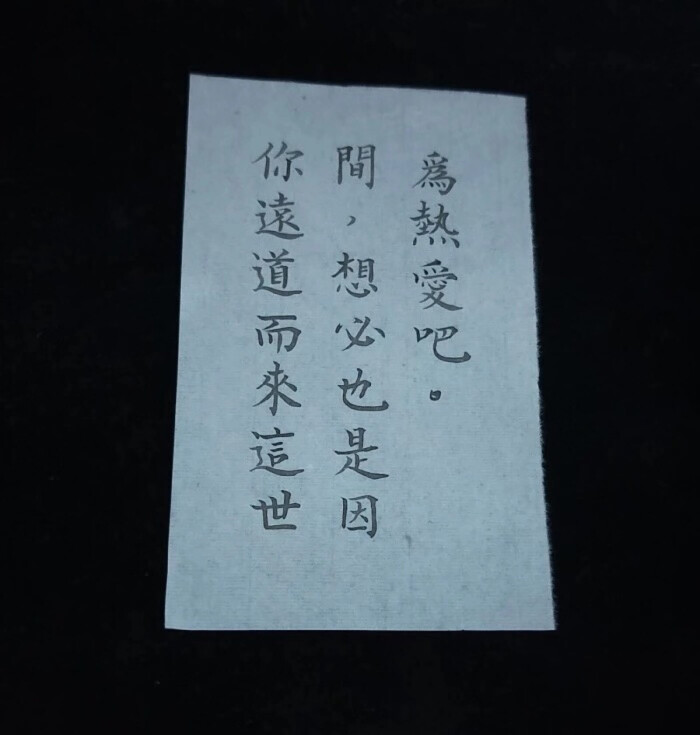 你遠道而來這世
間，想必也是因
為熱愛吧。